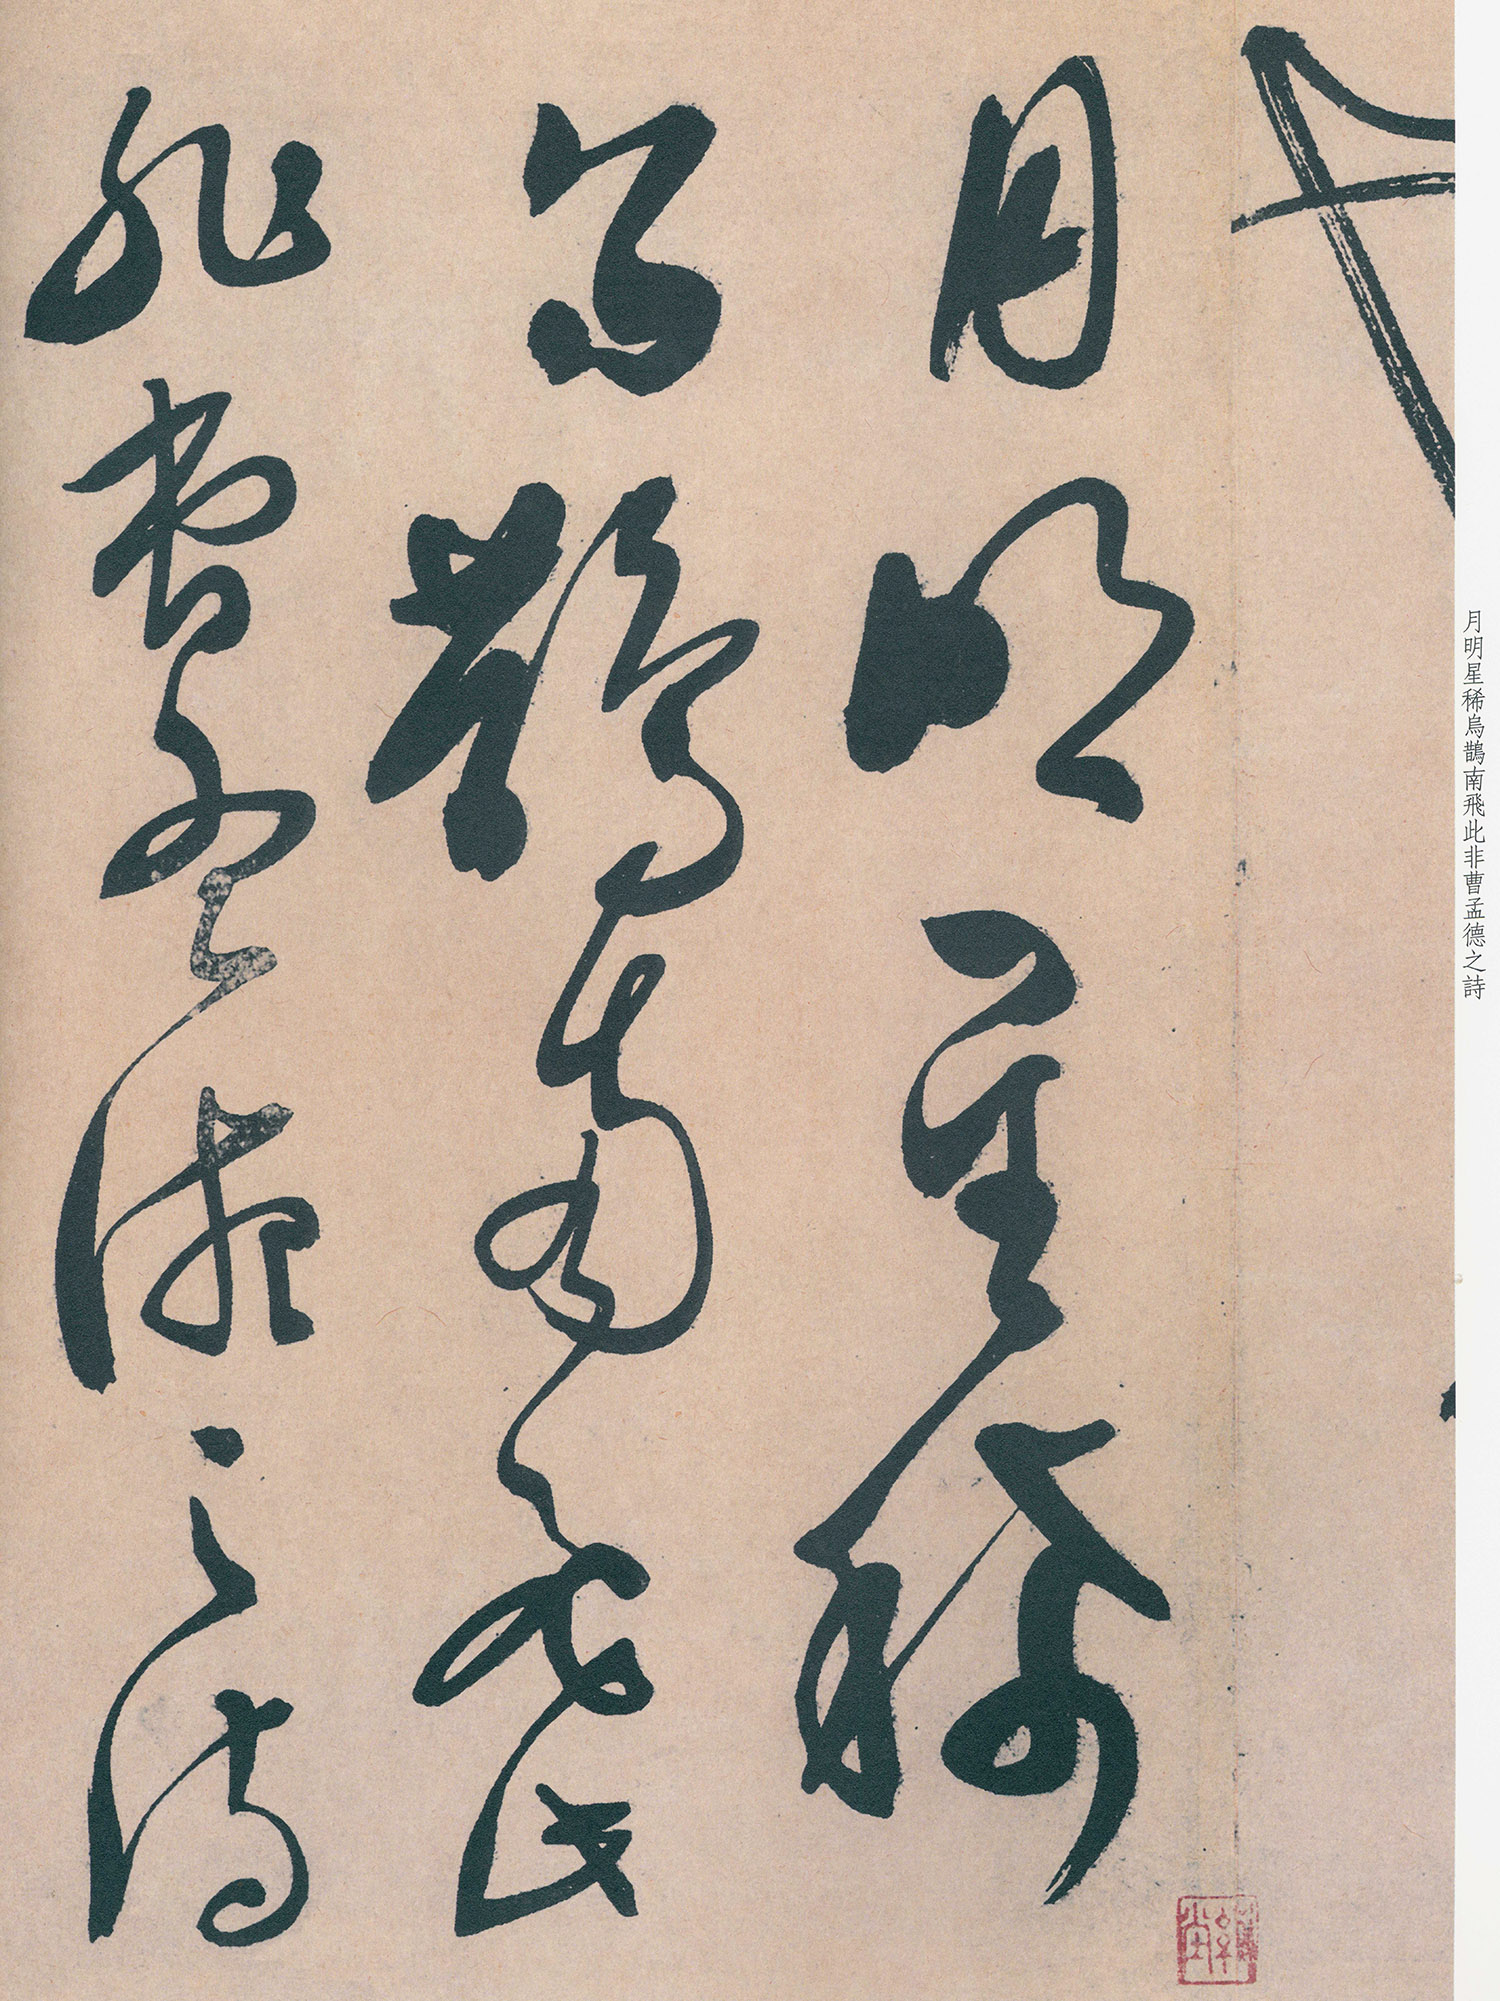 月明星稀
烏鵲南飛此
非曹孟德之詩
月明星稀烏鵲南飛此非曹孟德之詩